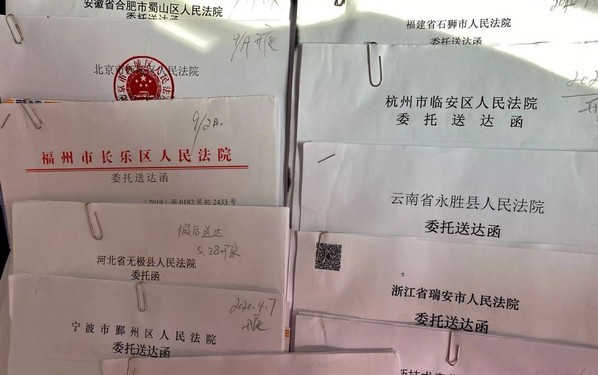 安徽省合肥市蜀山区人民法院
委托送达函
北京市西城区人民法院
9/2
福州市长乐区人民法院
委托送达函
假后送达
5.28开庭
河北省无极县人民法院
委托函
2020.4.7
开庭
宁波市鄞州区人民法院
委托送达函
福建省石狮市人民法院
委托送达函
杭州市临安区人民法院
委托送达函
云南省永胜县人民法院
委托送达函
浙江省瑞安市人民法院
委托送达函